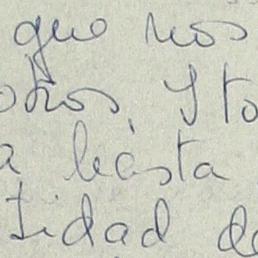 que nos
otros, Y to
a hásta
tidad de